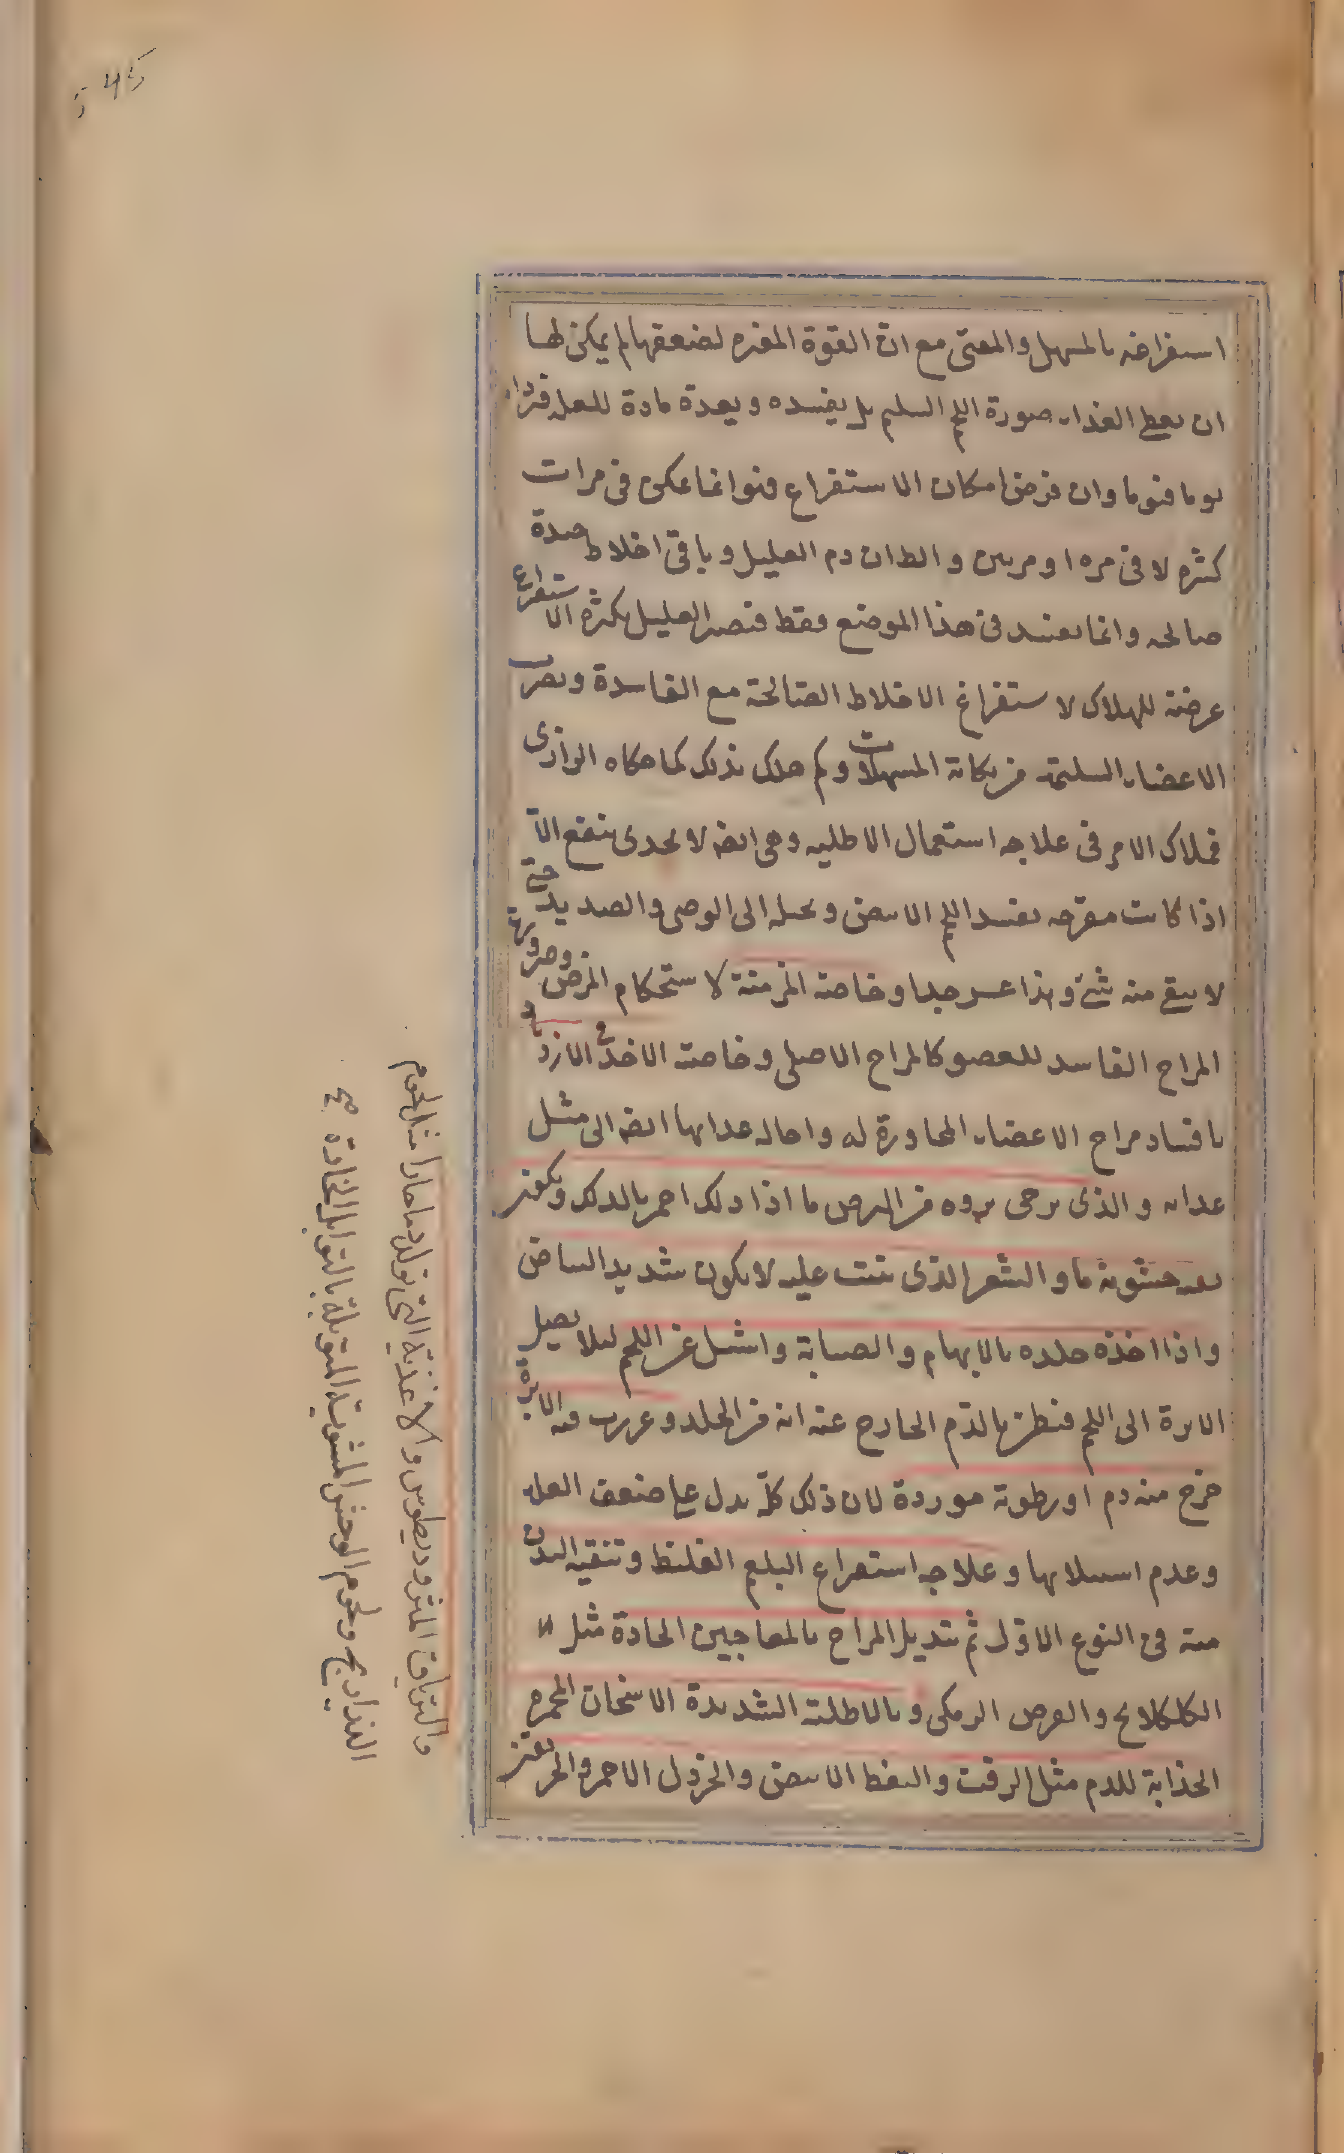 545
استفراغه بالمسهل والمقئ مع ان القوة المغيره لضعفها لم يمكن لها
ان يعطى الغذاء صورة اللحم السليم بل يفسده ويعده مادة للعله فتزداد
يوما فيوما وان فرض امكان الاستفراغ فهو انما يمكن فى مرات
كثيره لا فى مره او مرتين والظان دم العليل وباقى اخلاطه جيدة
صالحه وانما يفسد فى هذا الموضع فقط فتصير العليل بكثره الاستفراغ
عرضة للهلاك لاستفراغ الاخلاط الصالحة مع الفاسدة ويضرب
الاعضاء السليمة من نكاية المسهلات وكم هلك بذلك كما حكاه الرازى
فملاك الامر فى علاجه استعمال الاطليه وهى ايضه لا يجدى بنفع الا
اذا كانت مقرحه يفسد اللحم الابيض ويحيله الى الوضى والصديد حتى
لا يبقى منه شئ وهذا عسر جدا وخاصة المزمنة لاستحكام المرض وصيرورة
المزاج الفاسد للعضو كالمزاج الاصلى وخاصة الاخذ فى الازدياد
بافساد مزاج الاعضاء المجاورة له واحاله غذائها ايضه الى مثل
غذائه والذى يرجى بروه من البرص ما اذا دلك احمر بالدلك ويكون
معه خشونة ما والشعر الذى ينبت عليه لا يكون شديد البياض
واذا اخذه جلده بالابهام والصبابة واشيل عن اللحم ليلا يصل
الابرة الى اللحم فيظن بالدم الخارج عنه انه من الجلد وغرزت فيه الابرة
خرج منه دم او رطوبة موردة لان ذلك كله يدل على ضعف العله
وعدم استيلائها وعلاجه استفراغ البلغم الغليظ وتنقيه البدن
منه فى النوع الاول ثم تبديل المزاج بالمعاجين الحادة مثل
الكلكلانج والقرص البرمكى وبالاطلية الشديدة الاسخان المحمره
الجذابة للدم مثل الزفت والنفط الابيض والخردل الاحمر والخربقين
والترياق المثروديطوس والاغذية التى تولد دما حارا مثل لحوم
التدارج ولحوم الوحش المشوية المتوبلة بالتوابل الحادة صح